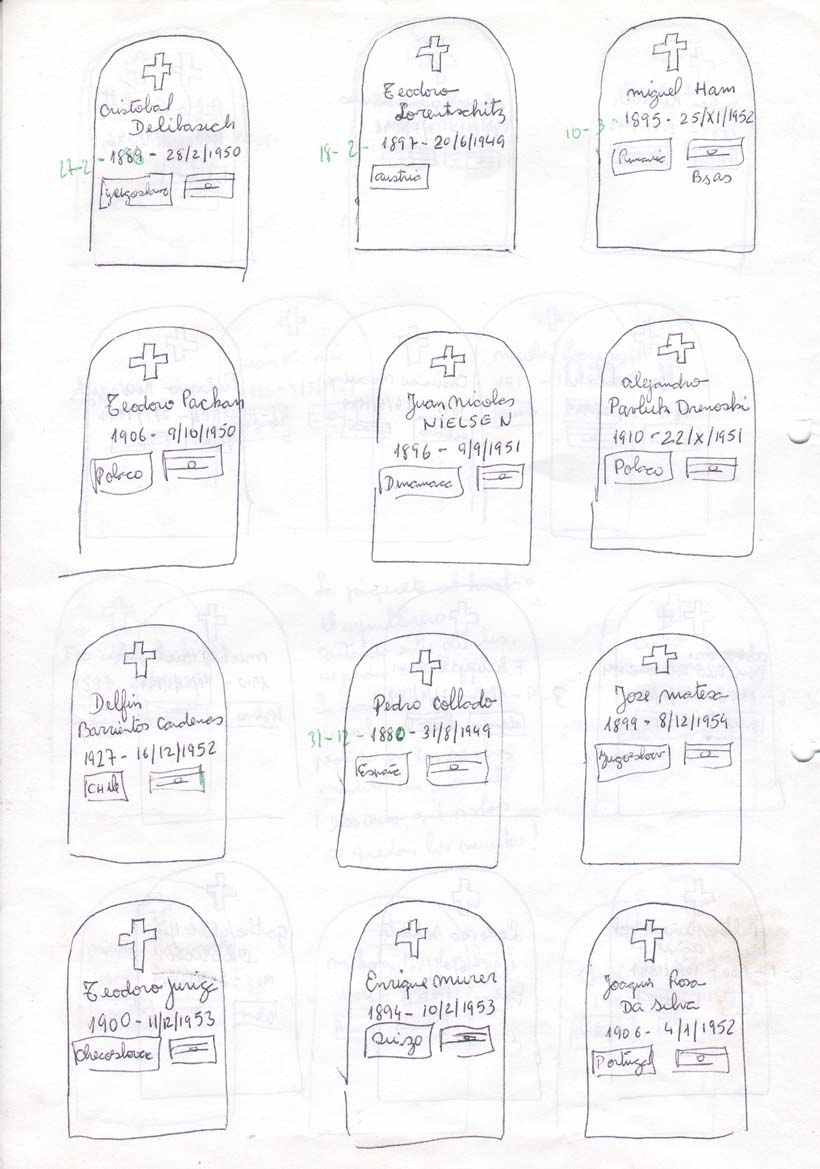 Cristobal
Delibasich
27-2-1889 - 28/2/1950
yugoslavo
Teodoro
Lorentschitz
18-2-1897-20/6/1949
austria
miguel Ham
10-3-1895-25/XI/1952
Rumania
BsAs
Teodoro Packan
1906-9/10/1950
Polaco
Juan Nicolas
NIELSEN
1896-9/9/1951
Dinamarca
alejandro
Pavluk Drenoski
1910-22/X/1951
Polaco
Delfin
Barrientos Cardenas
1927-16/12/1952
CHile
Pedro Collado
31-12-1880-31/8/1949
España
Jose matex
1899-8/12/1954
Jugoslav
Teodoro Jung
1900-11/12/1953
checoslovac
Enrique murer
1894-10/2/1953
Suizo
Joaquin Rosa
Da silva
1906-4/1/1952
Portugal